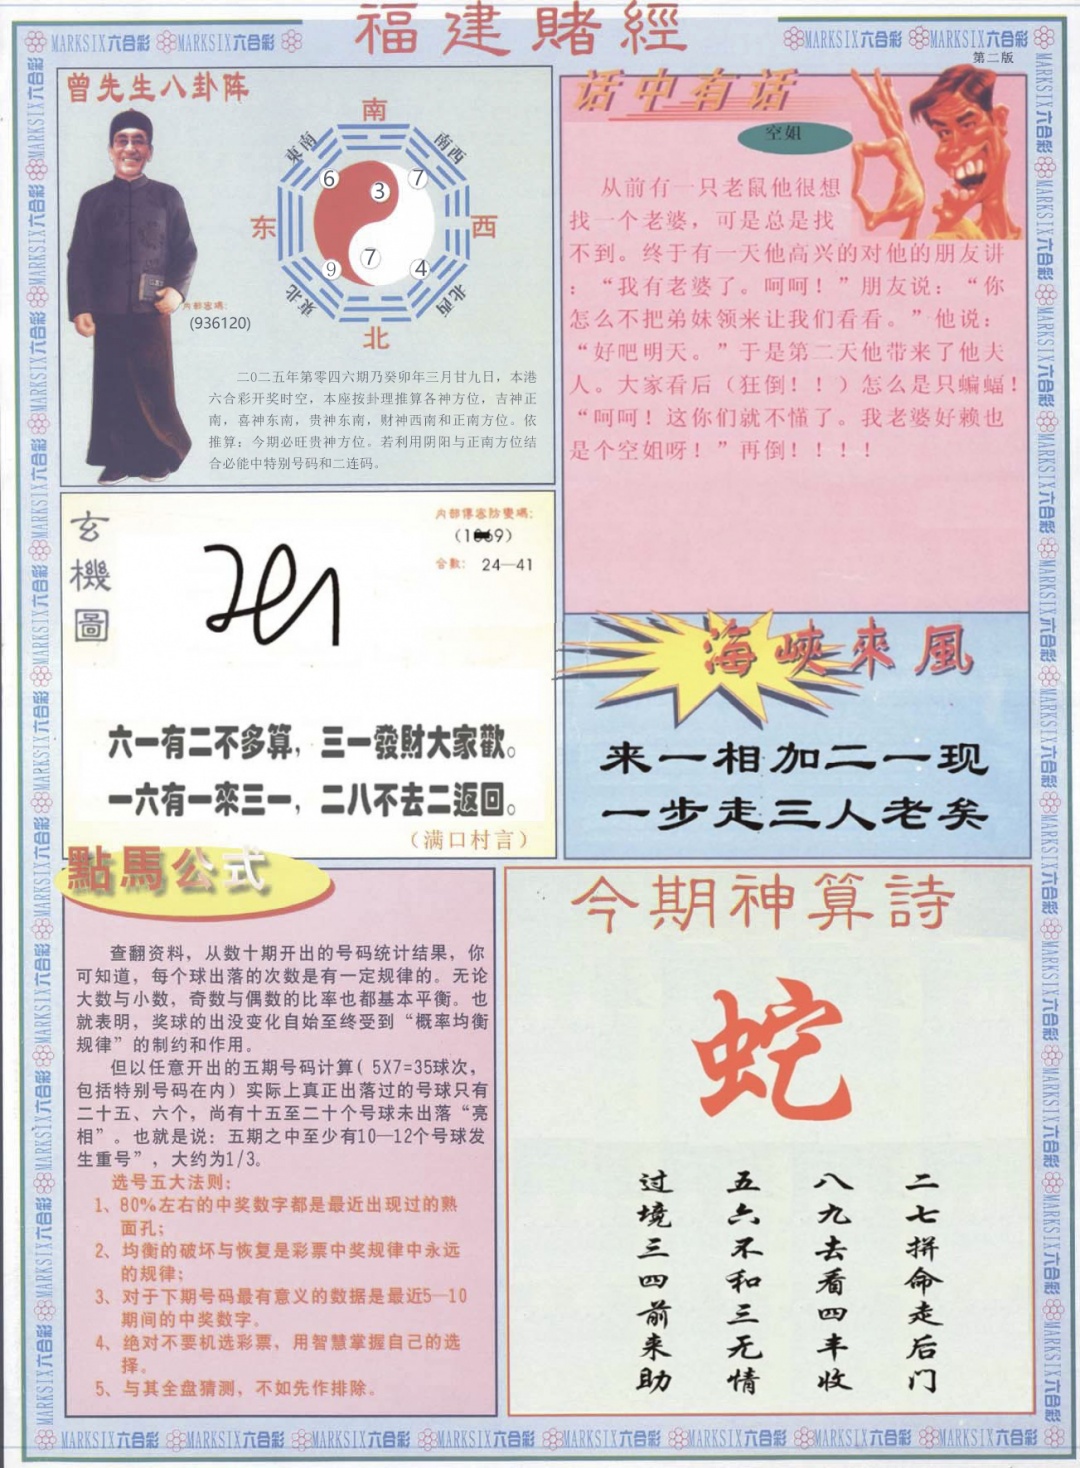 福建賭經
MARKSIX六合彩 MARKSIX六合彩
MARKSIX六合彩 MARKSIX六合彩
第二版
曾先生八卦阵
南
東南
南西
6
3
7
东
西
7
9
4
東北
北西
北
内部密碼:
(936120)
二0二五年第零四六期乃癸卯年三月廿九日，本港
六合彩开奖时空，本座按卦理推算各神方位，吉神正
南，喜神东南，贵神东南，财神西南和正南方位。依
推算：今期必旺贵神方位。若利用阴阳与正南方位结
合必能中特别号码和二连码。
话中有话
空姐
从前有一只老鼠他很想
找一个老婆，可是总是找
不到。终于有一天他高兴的对他的朋友讲
：“我有老婆了。呵呵！”朋友说：“你
怎么不把弟妹领来让我们看看。”他说：
“好吧明天。”于是第二天他带来了他夫
人。大家看后（狂倒！！）怎么是只蝙蝠！
“呵呵！这你们就不懂了。我老婆好赖也
是个空姐呀！”再倒！！！！
玄機圖
内部傳密防變碼:
合數: 24—41
六一有二不多算，三一發財大家歡。
一六有一來三一，二八不去二返回。
（满口村言）
海峽來風
来一相加二一现
一步走三人老矣
點馬公式
查翻资料，从数十期开出的号码统计结果，你
可知道，每个球出落的次数是有一定规律的。无论
大数与小数，奇数与偶数的比率也都基本平衡。也
就表明，奖球的出没变化自始至终受到“概率均衡
规律”的制约和作用。
但以任意开出的五期号码计算( 5X7=35球次，
包括特别号码在内）实际上真正出落过的号球只有
二十五、六个，尚有十五至二十个号球未出落“亮
相”。也就是说：五期之中至少有10—12个号球发
生重号”，大约为1/3。
选号五大法则:
1、80%左右的中奖数字都是最近出现过的熟
面孔;
2、均衡的破坏与恢复是彩票中奖规律中永远
的规律;
3、对于下期号码最有意义的数据是最近5—10
期间的中奖数字。
4、绝对不要机选彩票，用智慧掌握自己的选
择。
5、与其全盘猜测，不如先作排除。
今期神算詩
蛇
二七拼命走后门
八九去看四丰收
五六不和三无情
过境三四前来助
MARKSIX六合彩 MARKSIX六合彩 MARKSIX六合彩 MARKSIX六合彩 MARKSIX六合彩 MARKSIX六合彩 MARKSIX六合彩 MARKSIX六合彩